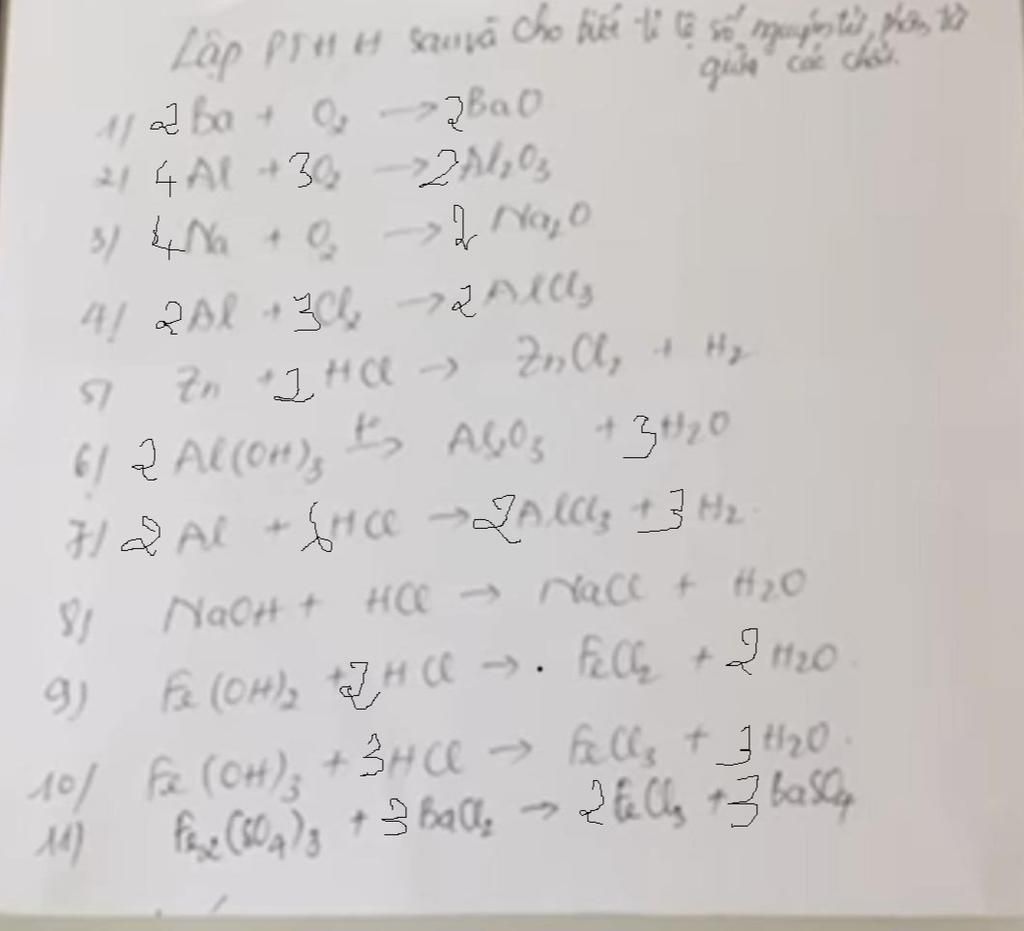 Lập PTHH sau và cho biết tỉ lệ số nguyên tử, phân tử
giữa các chất.
1) 2Ba + O₂ → 2BaO
2) 4Al + 3O₂ → 2Al₂O₃
3) 4Na + O₂ → 2Na₂O
4) 2Al + 3Cl₂ → 2AlCl₃
5) Zn + 2HCl → ZnCl₂ + H₂
6) 2Al(OH)₃ t°→ Al₂O₃ + 3H₂O
7) 2Al + 6HCl → 2AlCl₃ + 3H₂
8) NaOH + HCl → NaCl + H₂O
9) Fe(OH)₂ + 2HCl → FeCl₂ + 2H₂O
10) Fe(OH)₃ + 3HCl → FeCl₃ + 3H₂O
11) Fe₂(SO₄)₃ + 3BaCl₂ → 2FeCl₃ + 3BaSO₄